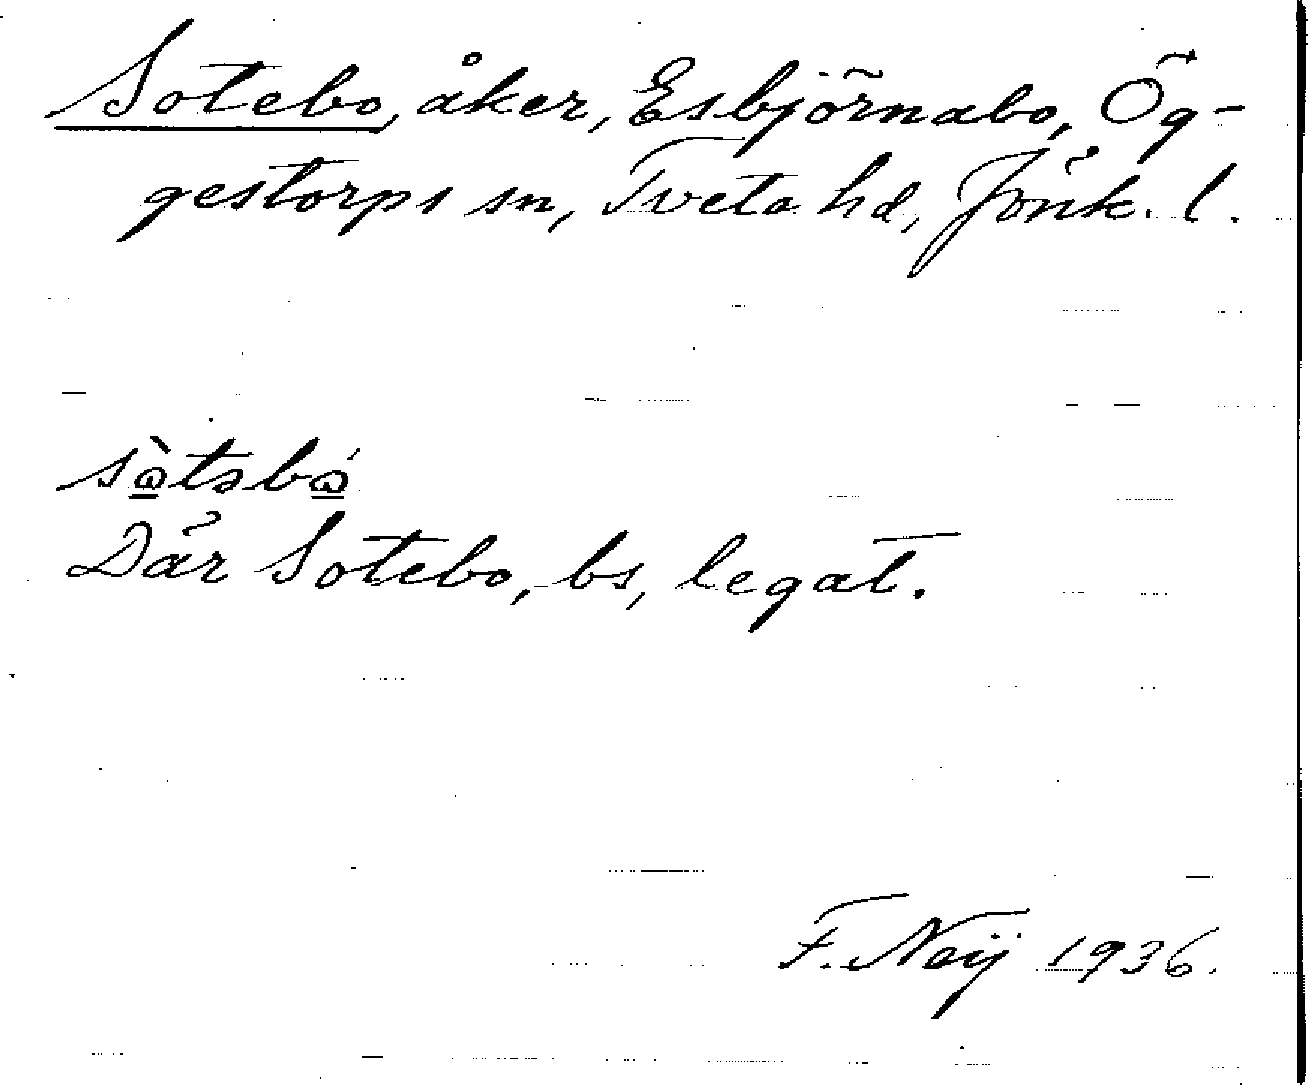 Sotebo, åker, Esbjörnabo, Ög-
gestorps sn, Tveta hd, Jönk. l.
sò̲təbó̲
Där Sotebo, bs, legat.
F. Neij 1936.